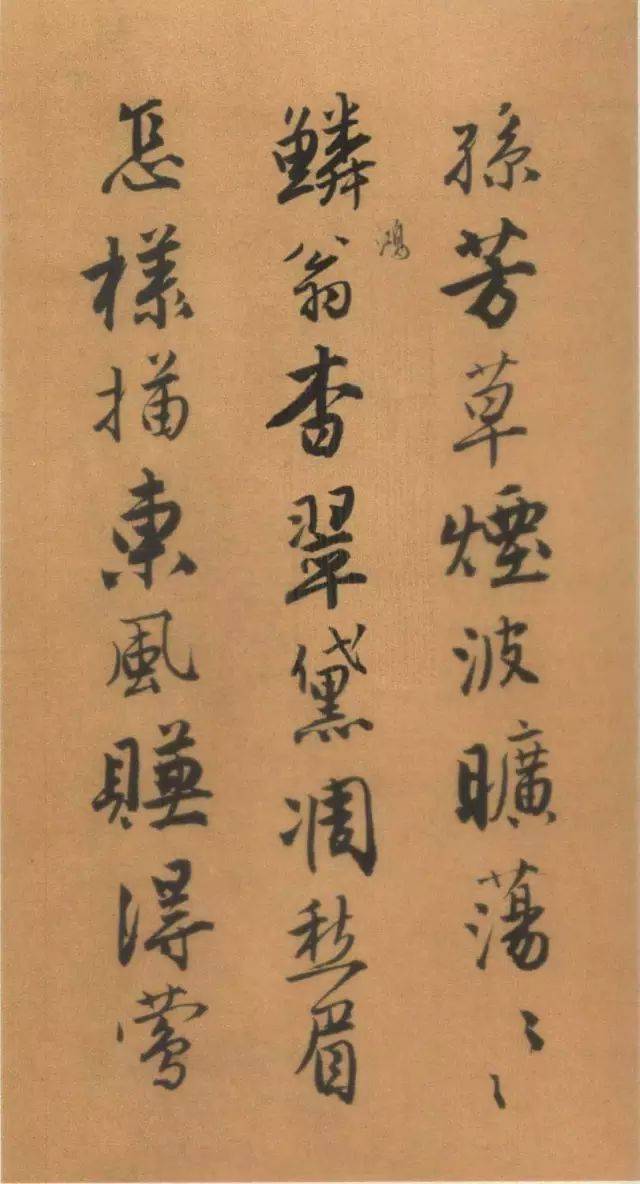 孫芳草煙波曠蕩〻〻
鱗翁杳翠黛凋愁眉
鴻
怎樣描東風賺得鶯